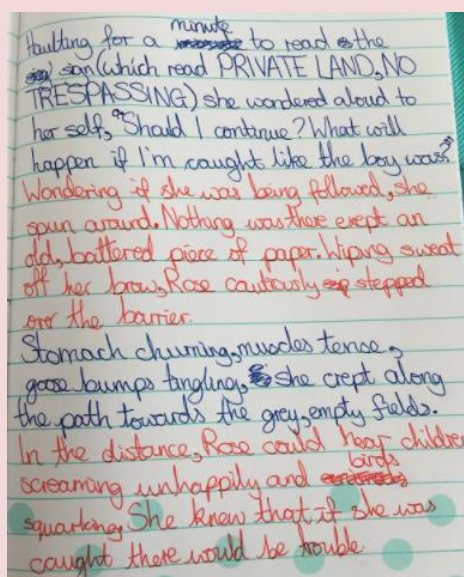 minute
Haulting for a to read the
sign (which read PRIVATE LAND, NO
TRESPASSING) she wondered aloud to
her self, "Should I continue? What will
happen if I'm caught like the boy was?"
Wondering if she was being followed, she
spun around. Nothing was there exept an
old, battered piece of paper. Wiping sweat
off her brow, Rose cautiously stepped
over the barrier.
Stomach churning, muscles tense,
goose bumps tingling, she crept along
the path towards the grey, empty fields.
In the distance, Rose could hear children
birds
screaming unhappily and
squarking. She knew that if she was
caught there would be trouble.